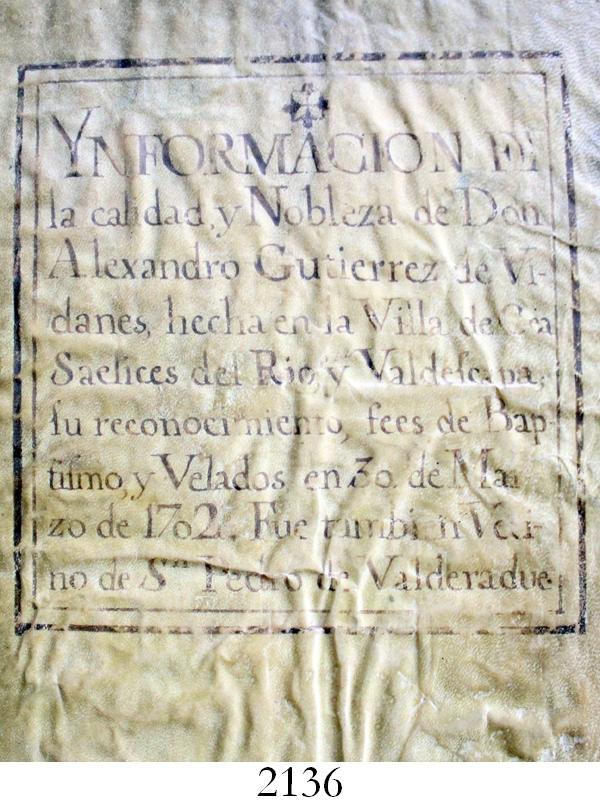 YNFORMACION DE
la calidad, y Nobleza de Don
Alexandro Gutierrez de Vi-
danes, hecha en la Villa de Cea
Saelices del Rio, y Valdescapa,
su reconocimiento, fees de Bap-
tismo, y Velados en 30. de Mar
zo de 1702. Fue tambien Veci-
no de Sn. Pedro de Valderadue
2136